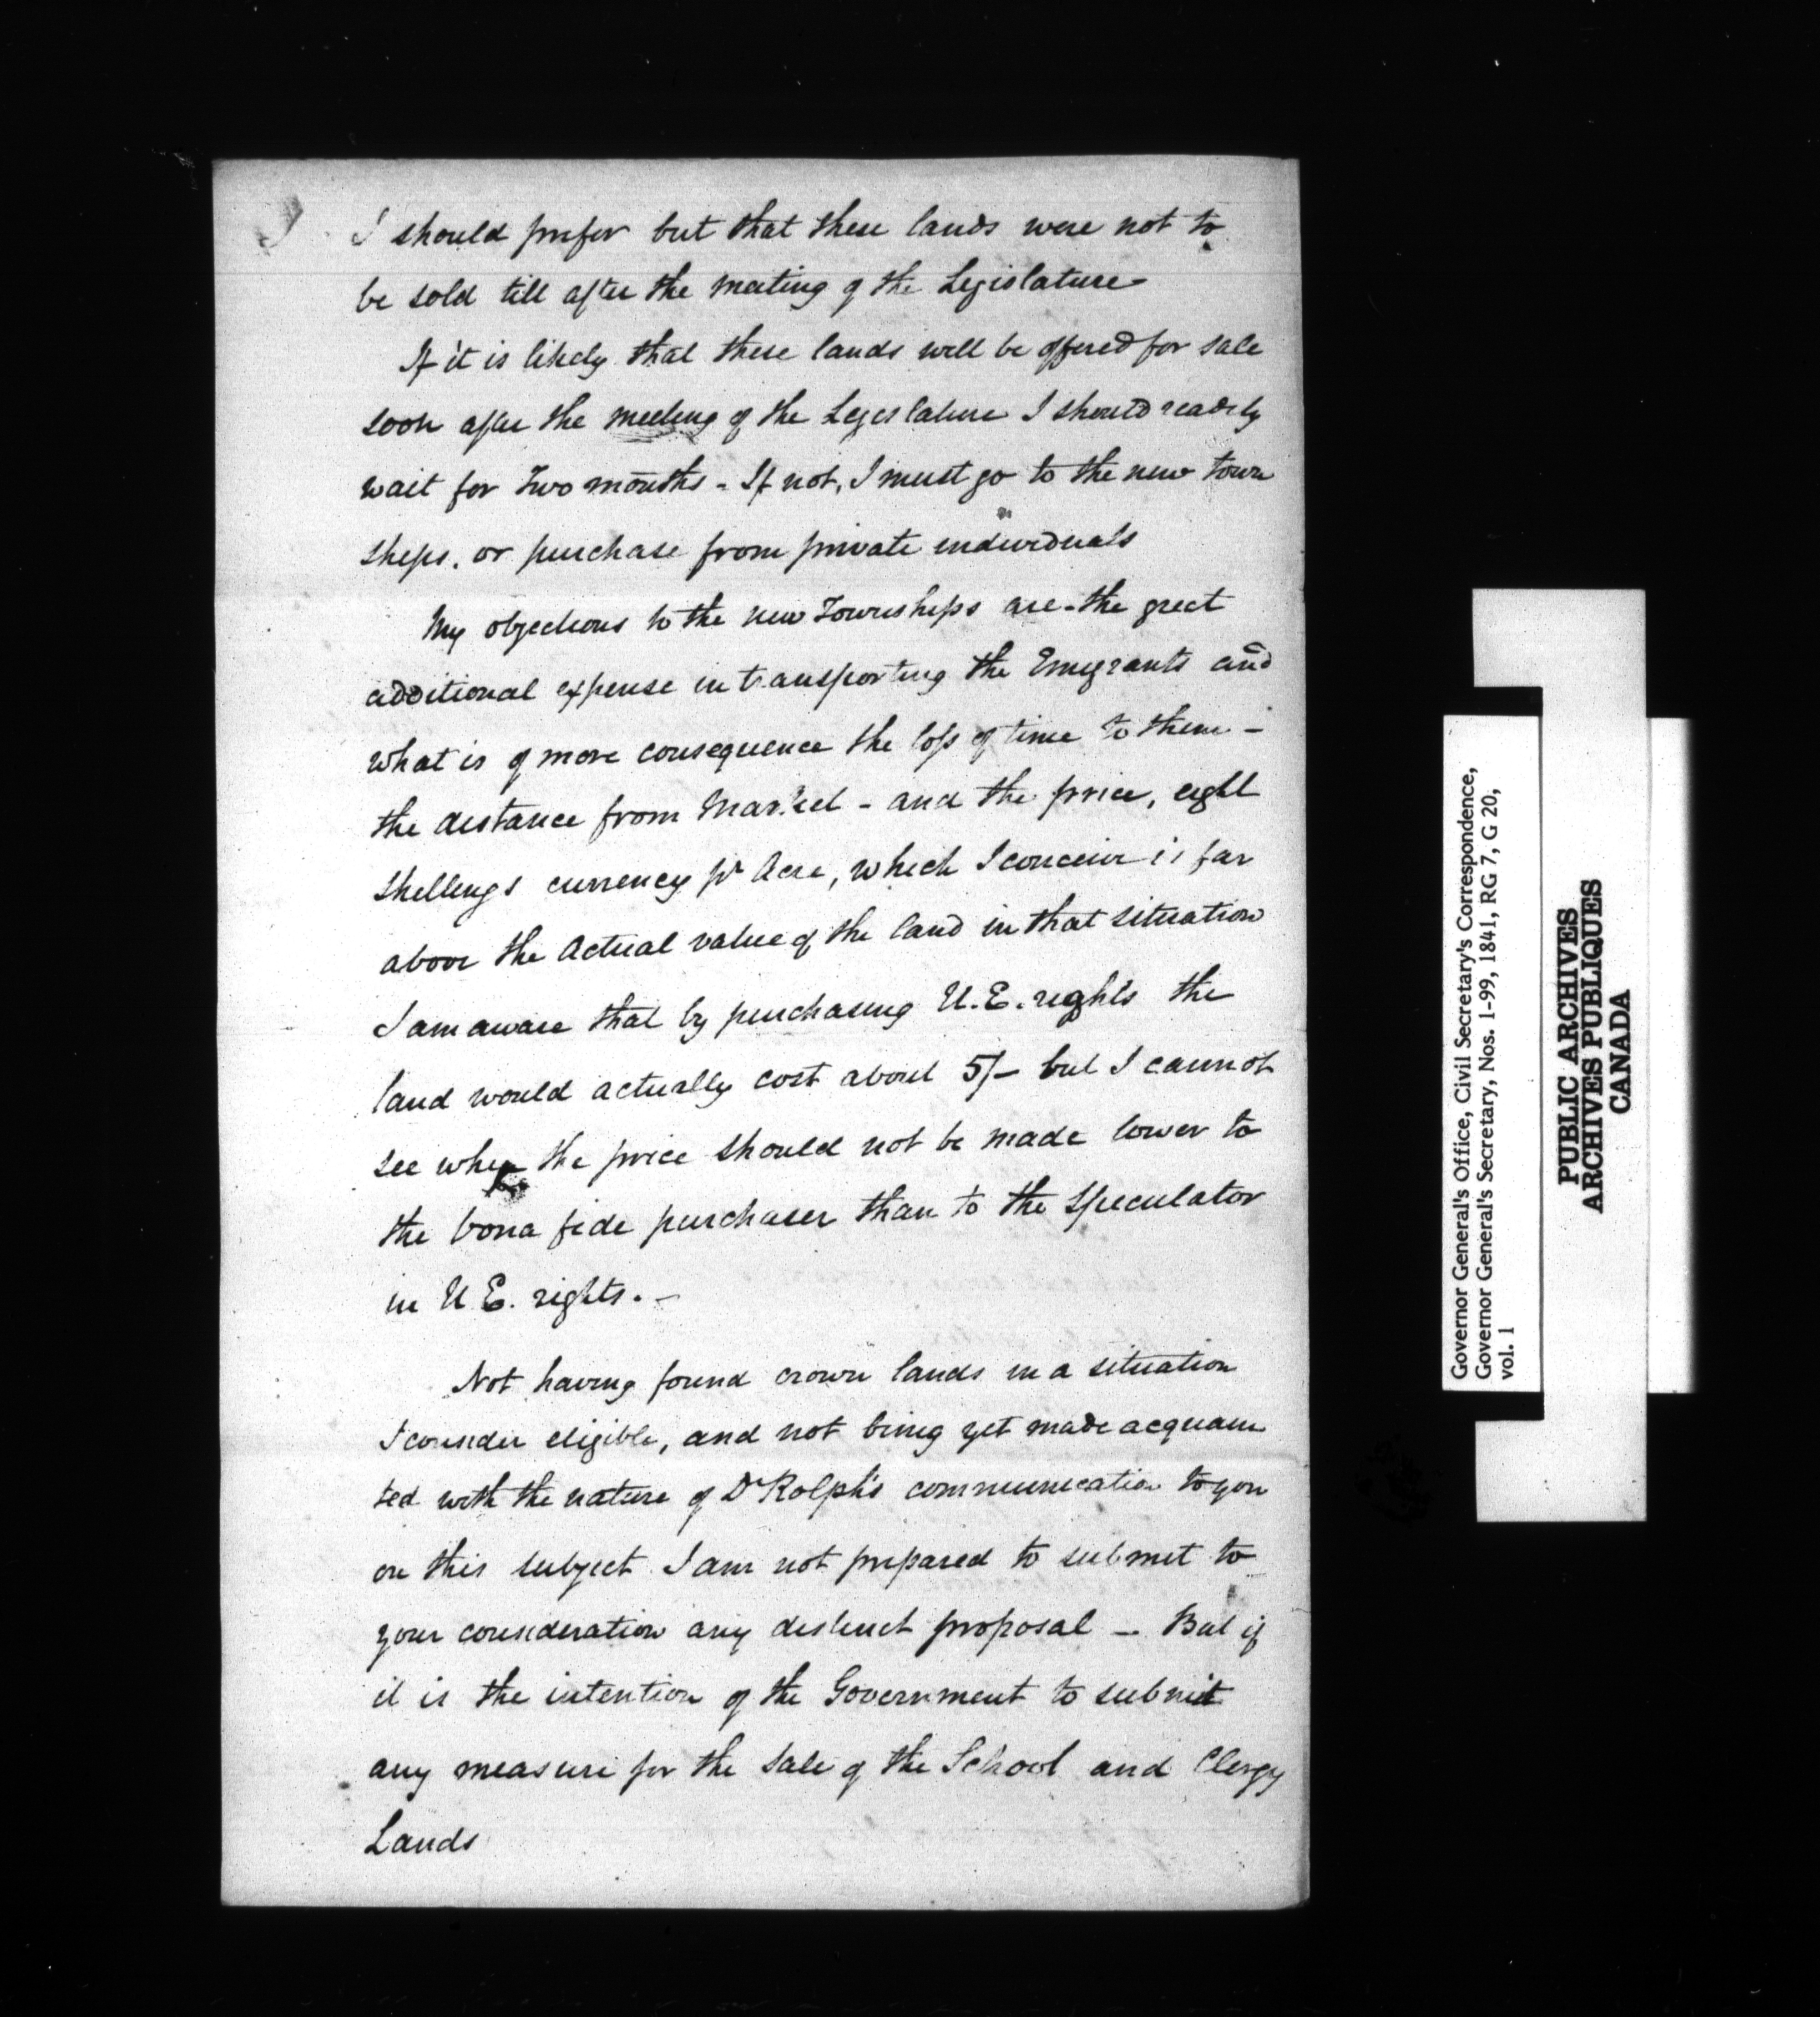 I should prefer but that these lands were not to
be sold till after the meeting of the Legislature
If it is likely that these lands will be offered for sale
soon after the meeting of the Legislature I should readily
wait for Two months - If not, I must go to the new town
ships, or purchase from private individuals
My objections to the new Townships are - the great
additional expense in transporting the Emigrants and
what is of more consequence the loss of time to them -
the distance from Market - and the price, eight
shillings currency pr Acre, which I conceive is far
above the Actual value of the land in that situation
I am aware that by purchasing U.E. rights the
land would actually cost about 5/- but I cannot
see why the price should not be made lower to
the bona fide purchaser than to the speculator
in U E. rights. -
Not having found crown lands in a situation
I consider eligible, and not being yet made acquain
ted with the nature of Dr Rolph's communication to you
on this subject I am not prepared to submit to
your consideration any distinct proposal - But if
it is the intention of the Government to submit
any measure for the sale of the School and Clergy
Lands
Governor General's Office, Civil Secretary's Correspondence,
Governor General's Secretary, Nos. 1-99, 1841, RG 7, G 20,
vol. 1
PUBLIC ARCHIVES
ARCHIVES PUBLIQUES
CANADA